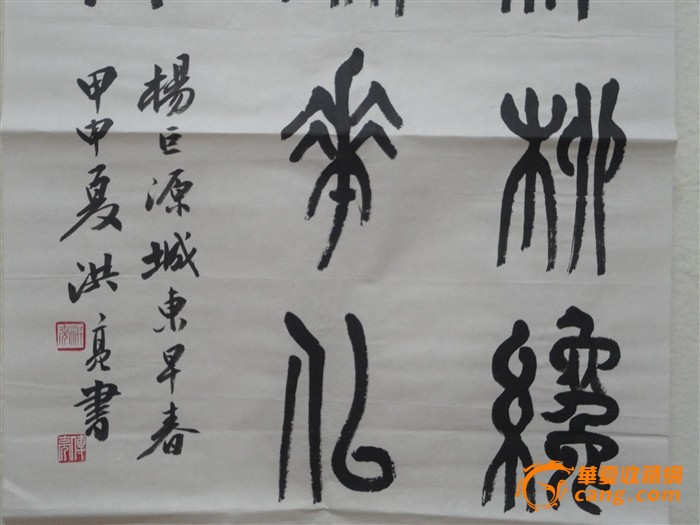 柳纔
華似
楊巨源城東早春
甲申夏洪亮書
華夏收藏網
cang.com